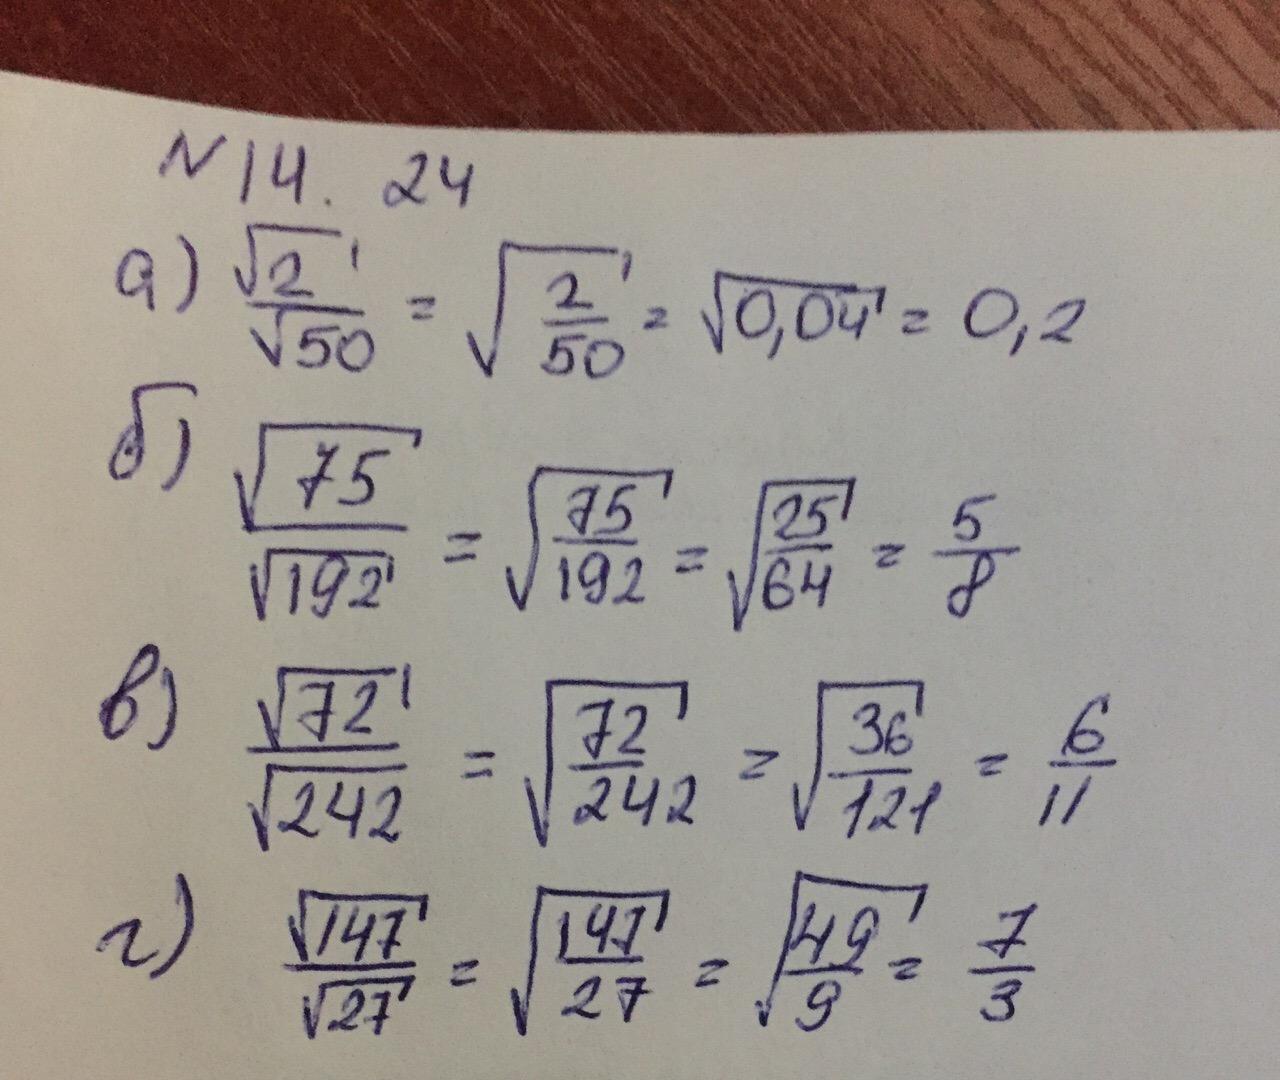 N 14. 24
а) √2/√50 = √(2/50) = √0,04 = 0,2
б) √75/√192 = √(75/192) = √(25/64) = 5/8
в) √72/√242 = √(72/242) = √(36/121) = 6/11
г) √147/√27 = √(147/27) = √(49/9) = 7/3